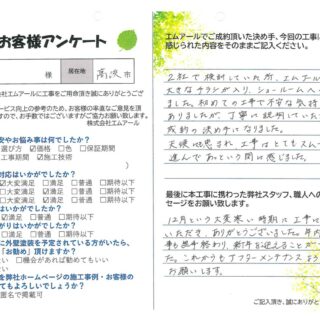 お客様アンケート
様
居在地
市
会社エムアールに工事をご用命頂き誠にありがとうござ
ービス向上の参考のため、お客様の率直なご意見を頂
ますので、お手数ではございますがご協力お願い致します。
株式会社エムアール
安やお悩み事は何でしたか？
選び方 価格 色 保証期間
工事期間 施工技術
対応はいかがでしたか？
大変満足 満足 普通 期待以下
大変満足 満足 普通 期待以下
大変満足 満足 普通 期待以下
がりはいかがでしたか？
満足 普通 期待以下
に外壁塗装を予定されている方がいたら、
「お勧め」頂けますか？
い 機会があれば勧めてもいい
ない
を弊社ホームページの施工事例・お客様の
てもよろしいでしょうか？
匿名で掲載可
エムアールでご成約頂いた決め手、今回の工事に
感じられた内容をそのままご記入ください。
2社で検討していた所、エムアール
大きなチラシが入り、ショールームへ
ました。初めての工事で不安な気持
ありましたが、丁寧に説明していた
成約の決め手になりました。
天候にも恵まれ、工事はとてもスム
進んであっという間に感じました。
最後に本工事に携わった弊社スタッフ、職人への
セージをお願い致します。
12月という大変寒い時期に工事に
いただき、ありがとうございました。年内
事も無事終わり、新年を迎えることが
た。これからもアフターメンテナンスよろ
お願いします。
ご記入頂き、誠にありがと